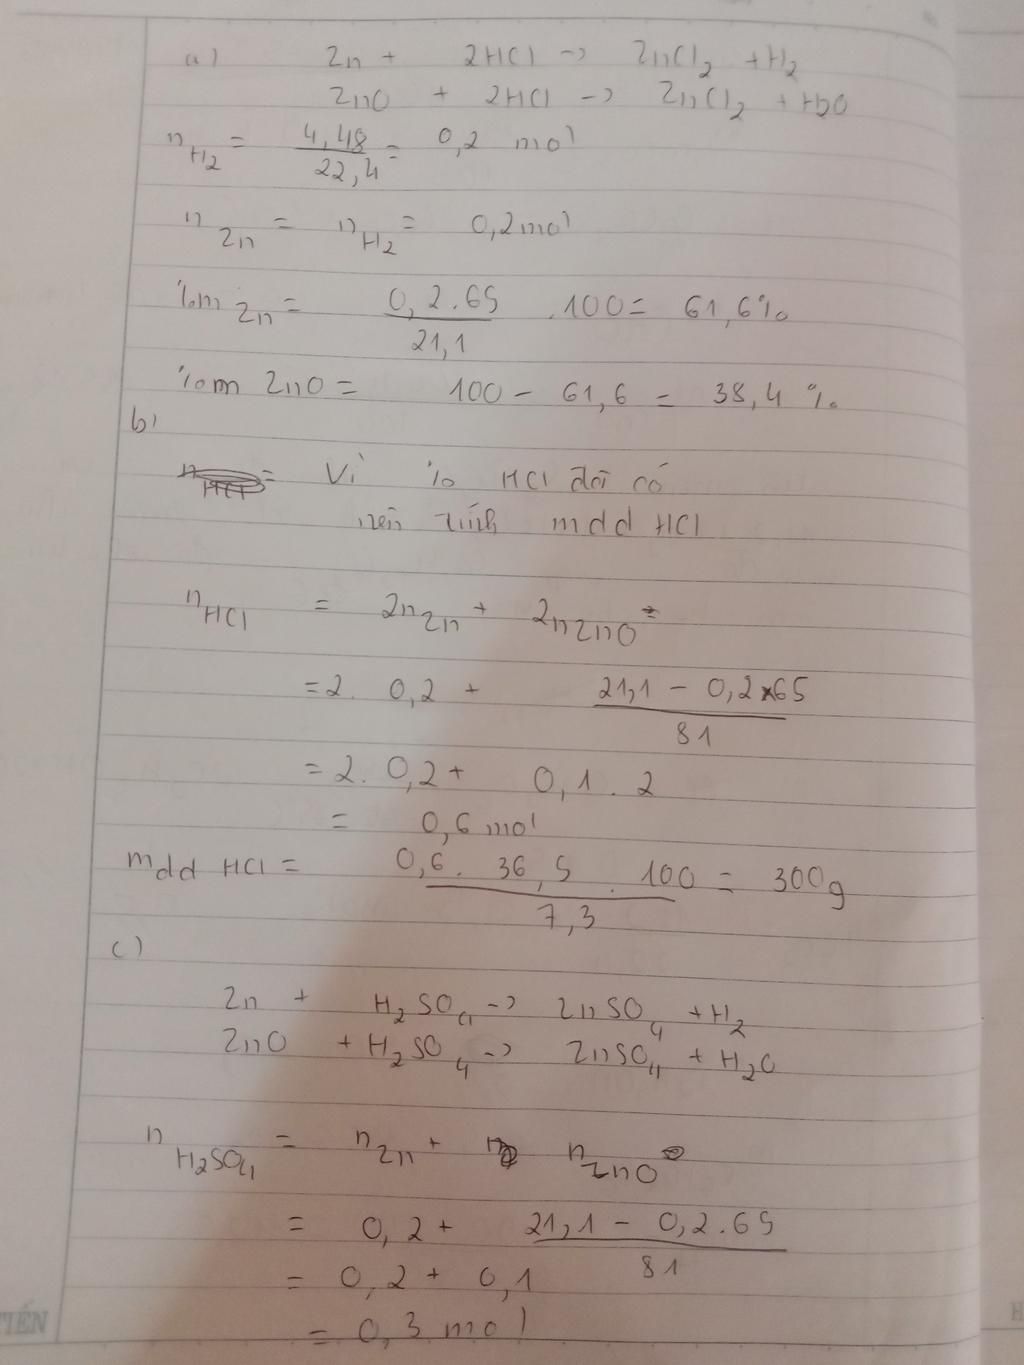 a) Zn + 2HCl -> ZnCl2 + H2
ZnO + 2HCl -> ZnCl2 + H2O
nH2 = 4,48/22,4 = 0,2 mol
nZn = nH2 = 0,2 mol
%m Zn = 0,2.65/21,1 .100 = 61,6%
%m ZnO = 100 - 61,6 = 38,4 %
b)
Vì % HCl đã có
nên tính mdd HCl
nHCl = 2nZn + 2nZnO =
= 2. 0,2 + 21,1 - 0,2x65/81
= 2. 0,2 + 0,1 . 2
= 0,6 mol
mdd HCl = 0,6. 36,5 . 100/7,3 = 300g
c)
Zn + H2SO4 -> ZnSO4 + H2
ZnO + H2SO4 -> ZnSO4 + H2O
nH2SO4 = nZn + nZnO
= 0,2 + 21,1 - 0,2.65/81
= 0,2 + 0,1
= 0,3 mol
TIẾN
H